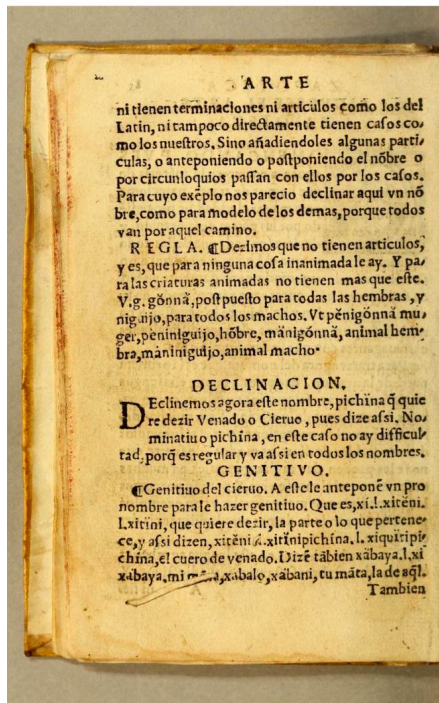 ARTE
ni tienen terminaciones ni articulos como los del
Latin, ni tampoco directamente tienen casos co-
mo los nuestros. Sino añadiendoles algunas parti-
culas, o anteponiendo o postponiendo el nõbre o
por circunloquios passan con ellos por los casos.
Para cuyo exẽplo nos parecio declinar aqui vn nõ
bre, como para modelo de los demas, porque todos
van por aquel camino.
REGLA. ¶Dezimos que no tienen articulos,
y es, que para ninguna cosa inanimada le ay. Y pa-
ra las criaturas animadas no tienen mas que este.
V.g. gönnä, postpuesto para todas las hembras, y
niguijo, para todos los machos. Vt pẽnigönnä mu-
ger, pẽniniguijo, hõbre, mänigónnä, animal hem-
bra, mäniniguijo, animal macho.
DECLINACION.
DEclinemos agora este nombre, pichïna q̃ quie
re dezir Venado o Cieruo, pues dize assi. No-
minatiuo pichína, en este caso no ay difficul-
tad, porq̃ es regular y va assi en todos los nombres.
GENITIVO.
¶Genitiuo del cieruo. A este le anteponẽ vn pro
nombre para le hazer genitiuo. Que es, xí.l.xitẽni.
l.xitini, que quiere dezir, la parte o lo que pertene-
ce, y assi dizen, xitẽni .l.xitïnipichína.l. xiquitipi-
chína, el cuero de venado. Dizẽ tãbien xäbaya.l.xi
xäbaya, mi xäbalo, xäbani, tu mãta, la de aq̃l.
Tambien